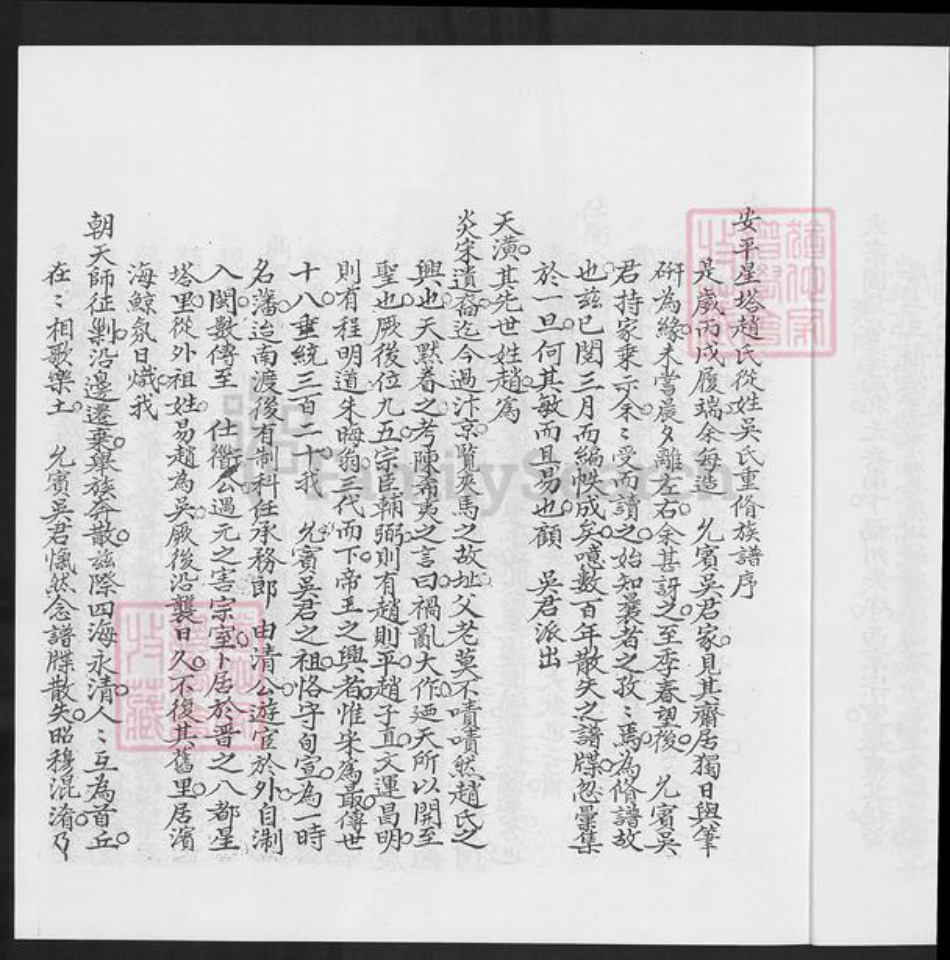 安平星塔趙氏從姓吳氏重脩族譜序
是歲丙戌履端余每造　允賓吳君家見其齋居獨日與筆
研為緣未嘗晨夕離左右余甚訝之至季春望後　允賓吳
君持家乘示余〻受而讀之始知曩者之孜〻焉為脩譜故
也茲已閱三月而編帙成矣噫數百年散失之譜牒忽彙集
於一旦何其敏而且易也顧　吳君派出
天潢其先世姓趙為
炎宋遺裔迄今過汴京覽夾馬之故址父老莫不嘖嘖然趙氏之
興也天默眷之考陳希夷之言曰禍亂大作廼天所以開至
聖也厥後位九五宗臣輔弼則有趙則平趙子直文運昌明
則有程明道朱晦翁三代而下帝王之興者惟宋為最傳世
十八垂統三百二十我　允賓吳君之祖恪字旬宣為一時
名藩迨南渡後有制科任承務郎　由清公遊宦於外自淛
入閩數傳至　仕衢公遇元之害宗室卜居於晋之八都星
塔里從外祖姓易趙為吳厥後沿襲日久不復其舊里居濱
海鯨氛日熾我
朝天師征剿沿邊遷棄舉族奔散茲際四海永清人〻互為首丘
在〻相歌樂土　允賓吳君愾然念譜牒散失昭穆混淆乃